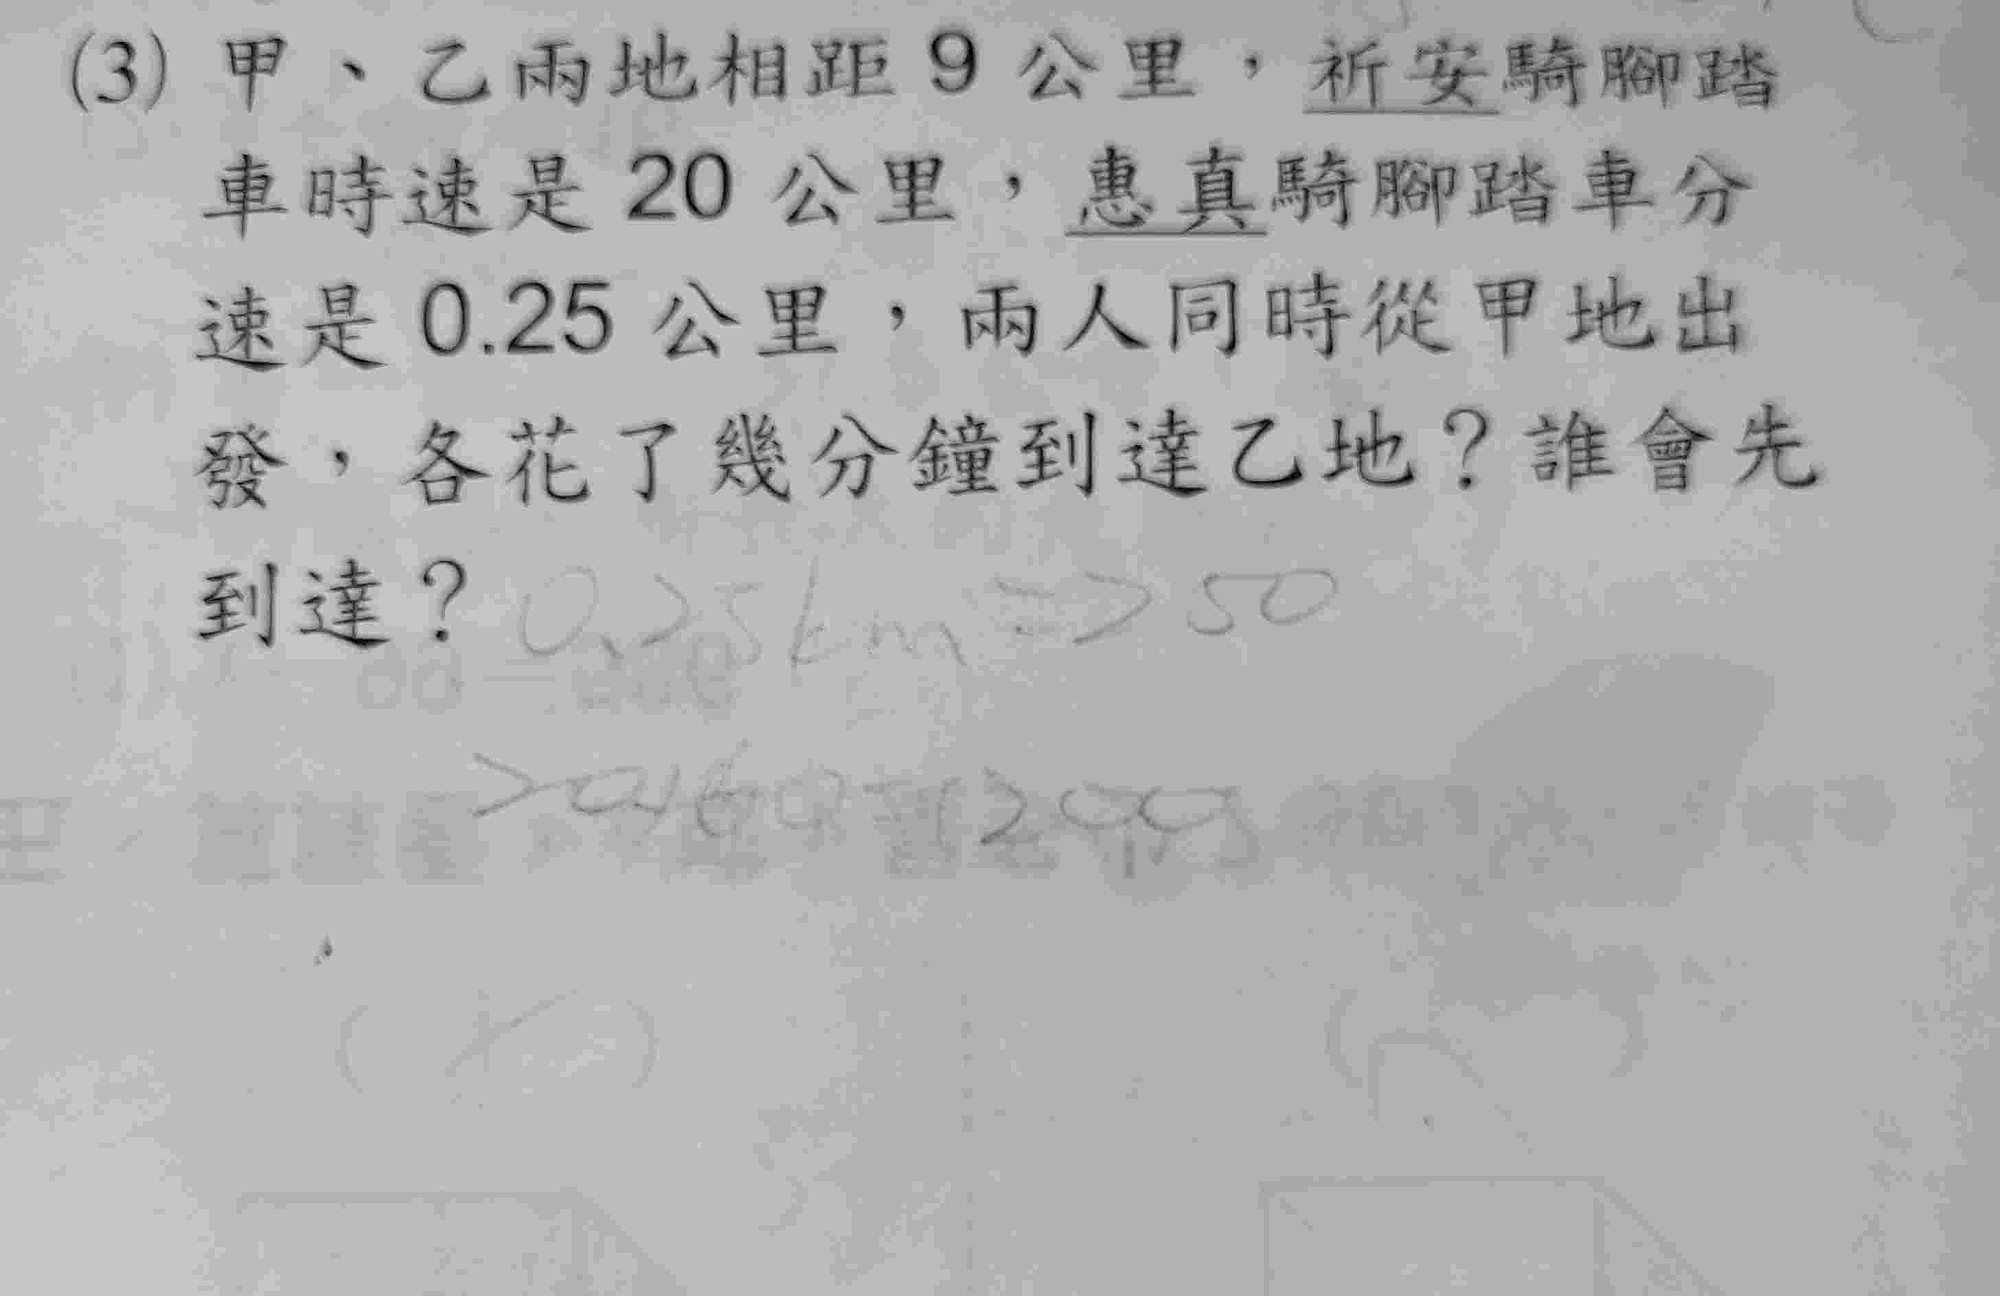 (3) 甲、乙兩地相距 9 公里，祈安騎腳踏
車時速是 20 公里，惠真騎腳踏車分
速是 0.25 公里，兩人同時從甲地出
發，各花了幾分鐘到達乙地？誰會先
到達？ 0.25km => 50